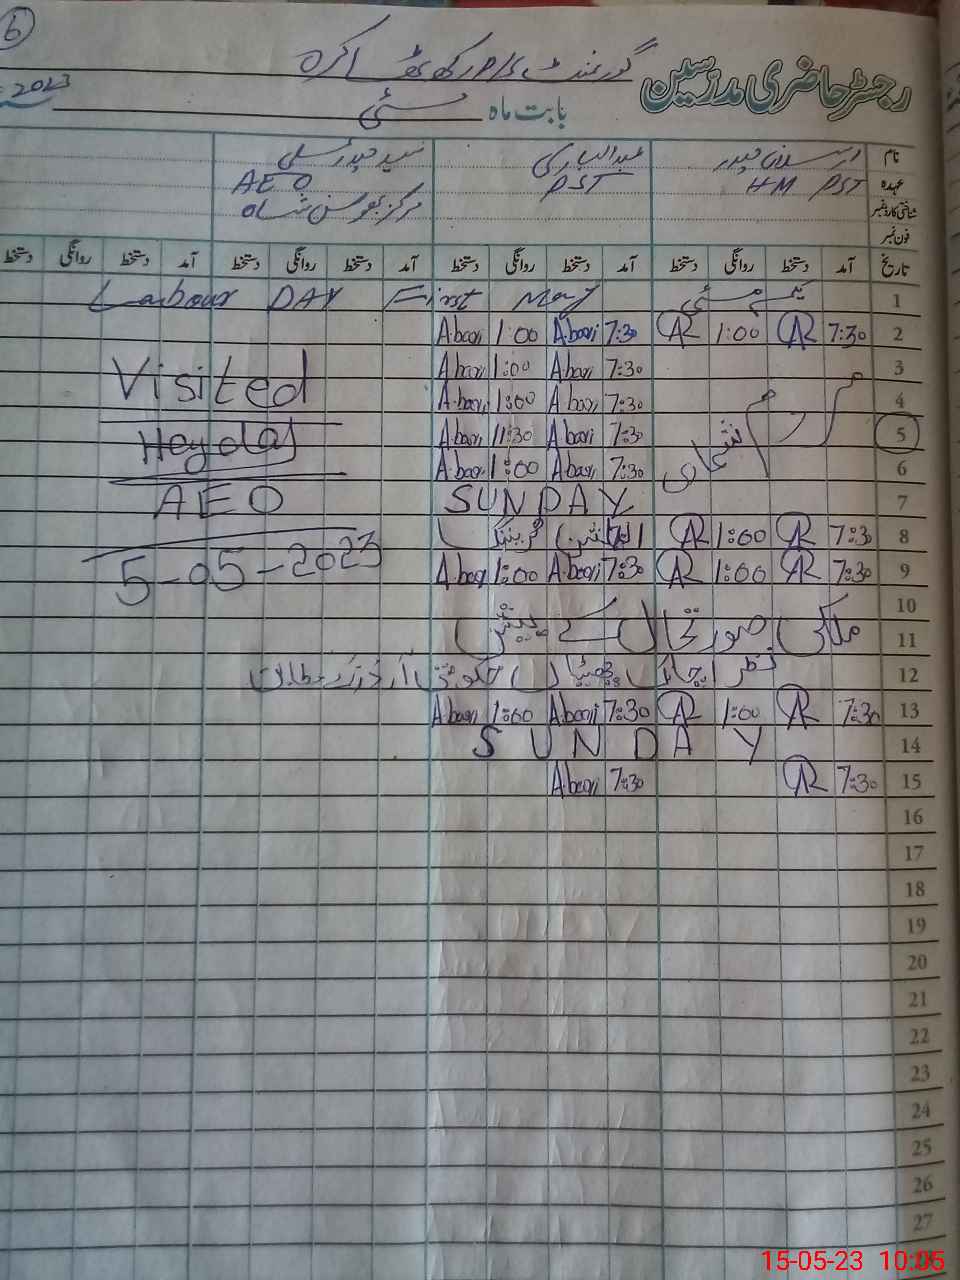 6
رجسٹر حاضری مدرسین گورنمنٹ P/S رکھ
2023 بابت ماہ مئی
نام ارسلان حیدر عبدالباری سید حیدر علی
عہدہ HM PST PST AEO
شناختی کارڈ نمبر مرکز شاہ
فون نمبر
تاریخ آمد دستخط روانگی دستخط آمد دستخط روانگی دستخط آمد دستخط روانگی دستخط آمد دستخط روانگی دستخط
1 یکم مئی Labour DAY First May
2 7:30 AR 1:00 AR 7:30 Abari 1:00 Abari
3 7:30 Abari 1:00 Abari
Visited
4 7:30 Abari 1:00 Abari
5 7:30 Abari 11:30 Abari
Heydar
6 7:30 Abari 1:00 Abari
7 SUNDAY
AEO
8 7:30 AR 1:00 AR الیکشن ٹریننگ
5-05-2023
9 7:30 AR 1:00 AR 7:30 Abari 1:00 Abari
10
11 ملکی صورتحال کے پیش
12 نظر اچانک چھٹیاں حکومتی آرڈرز کے مطابق
13 7:30 AR 1:00 AR 7:30 Abari 1:00 Abari
14 SUNDAY
15 7:30 AR 7:30 Abari
16
17
18
19
20
21
22
23
24
25
26
27
15-05-23 10:05